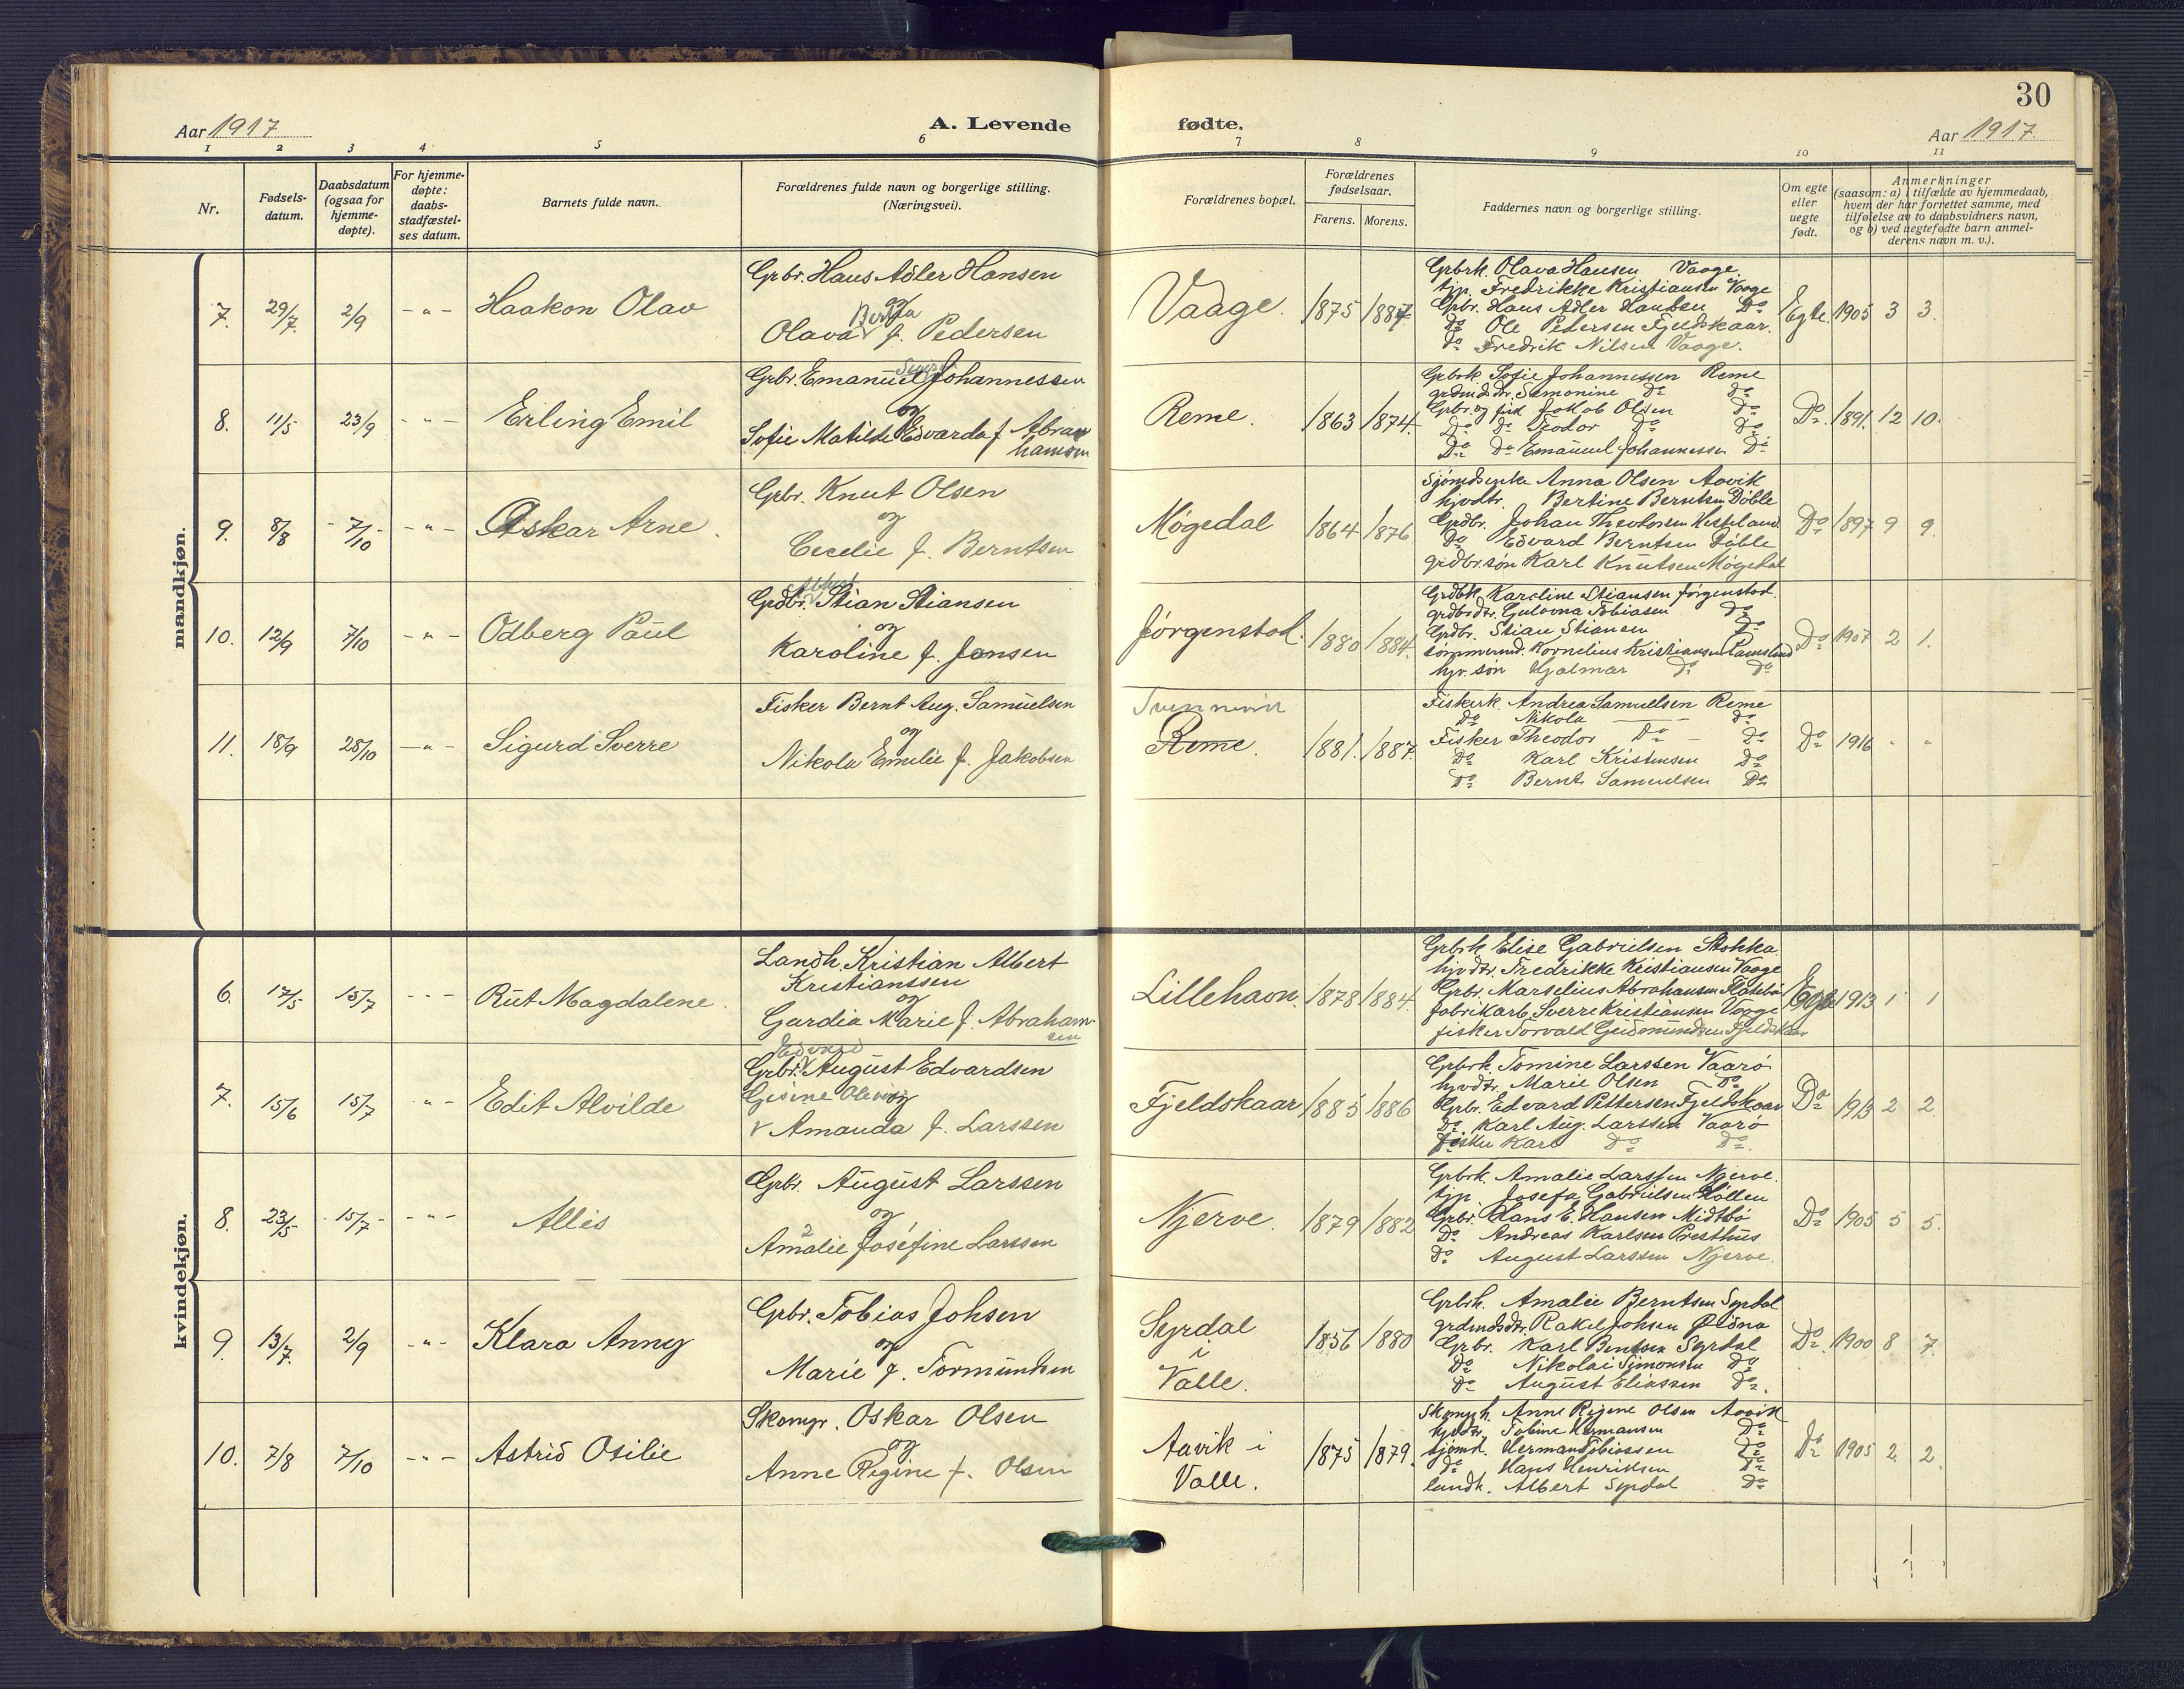 30
Aar 1917
A. Levende
fødte.
Aar 1917.
1 2 3 4 5 6 7 8 9 10 11
Nr.
Fødsels-
datum.
Daabsdatum
(ogsaa for
hjemme-
døpte).
For hjemme-
døpte:
daabs-
stadfæstel-
ses datum.
Barnets fulde navn.
Forældrenes fulde navn og borgerlige stilling.
(Næringsvei).
Forældrenes bopæl.
Forældrenes
fødselsaar.
Farens. Morens.
Faddernes navn og borgerlige stilling.
Om egte
eller
uegte
født.
Anmerkninger
(saasom: a) i tilfælde av hjemmedaab,
hvem der har forrettet samme, med
tilføielse av to daabsvidners navn,
og b) ved uegtefødte barn anmel-
derens navn m. v.).
mandkjøn.
7. 29/7. 2/9 -"- Haakon Olav
Grbr. Hans Adler Hansen
og
Berta
Olava f. Pedersen
Vaage. 1875 1887
Grbrk. Olava Hansen Vaage.
tjp. Fredrikke Kristiansen Vaage
Grbr. Hans Adler Hansen Do
Do Ole Pedersen Fjeldskaar.
Do Fredrik Nilsen Vaage.
Egte. 1905 3 3.
8. 11/5 23/9 -"- Erling Emil
Grbr. Emanuel Johannessen
og
Sofie Matilde Edvarda f. Abra-
hamsen
Reme. 1863 1874.
Grbrk. Sofie Johannessen Reme
grdmdsdtr. Samonine Do Do
Grbr. og fisk Jakob Olsen Do
Do Do Teodor Do Do
Do Do Emanuel Johannessen Do
Do. 1891. 12 10.
9. 8/8 7/10 -"- Oskar Arne.
Grbr. Knut Olsen
og
Cecelie f. Berntsen
Møgedal 1864 1876
Sjømdsenke Anna Olsen Aavik
hjvdtr. Bertine Berntsen Døble
Grdbr. Johan Theodorsen Hesteland
Do Edvard Berntsen Døble
grdbr.søn Karl Knutsen Møgedal
Do 1897 9 9.
10. 12/9 7/10 -"- Odberg Paul
Albert
Grdbr. Stian Stiansen
og
Karoline f. Jansen
Jørgenstad. 1880 1884.
Grdbk. Karoline Stiansen Jørgenstad.
grdbrdtr. Gulovna Tobiasen Do
Grdbr. Stian Stiansen Do
tømmermd. Kornelius Kristiansen
hjv. søn Hjalmar Do Do
Do 1907 2 1.
11. 18/9 28/10 -"- Sigurd Sverre
Fisker Bernt Aug. Samuelsen
og
Nikola Emilie f. Jakobsen
Reme. 1881. 1887.
Fiskerk. Andrea Samuelsen Reme
Do Nikola — Do
Fisker Theodor Do - Do
Do Karl Kristensen Do
Do Bernt Samuelsen Do
Do 1916 " "
kvindekjøn.
6. 17/5 15/7 -"- Rut Magdalene.
Landh. Kristian Albert
Kristianssen
og
Gardia Marie f. Abraham-
sen
Lillehavn. 1878 1884.
Grbrk Elise Gabrielsen
hjvdtr. Fredrikke Kristiansen Vaage
Grbr. Marselius Abrahamsen
fabrikarb. Sverre Kristiansen Vaage
fisker Torvald Gudmundsen Fjeldskaar
1913 1 1
7. 15/6 15/7 -"- Edit Alvilde
Edvard
Grbr. August Edvardsen
Gisine
og
Amanda f. Larssen
Fjeldskaar 1885 1886
Grbrk. Tomine Larssen Vaarø
hjvdtr. Marie Olsen Do
Grbr. Edvard Pettersen Fjeldskaar
Do Karl Aug. Larssen Vaarø
Fisker Karl Do Do
Do 1913 2 2.
8. 23/5 15/7 -"- Allis
Grbr. August Larssen
og
Amalie Josefine Larssen
Njerve. 1879 1882
Grbrk. Amalie Larssen Njerve.
tjp Josefa Gabrielsen Høllen
Grbr. Hans E. Hansen Midtbø
Do Andreas Karlsen Presthus
Do August Larssen Njerve.
Do 1905 5 5.
9. 13/7. 2/9 -"- Klara Anny
Grbr. Tobias Johsen
og
Marie f. Tormundsen
Syrdal
i
Valle. 1856 1880
Grbrk. Amalie Berntsen Syrdal
grdmdsdtr. Rakel Johsen Ødsna
Grbr. Karl Bentsen Syrdal
Do Nikolai Simonsen Do
Do August Eliassen Do.
Do. 1900 8 7.
10. 7/8 7/10 -"- Astrid Osilie
Skomgr. Oskar Olsen
og
Anne Regine f. Olsen
Aavik i
Valle. 1875 1879.
Skomgrk. Anne Regine Olsen Aavik
hjvdtr. Tobine Hermansen Do
Sjømd. Herman Tobiassen Do
Do Hans Henriksen Do
landh. Albert Syrdal Do
Do 1905 2. 2.